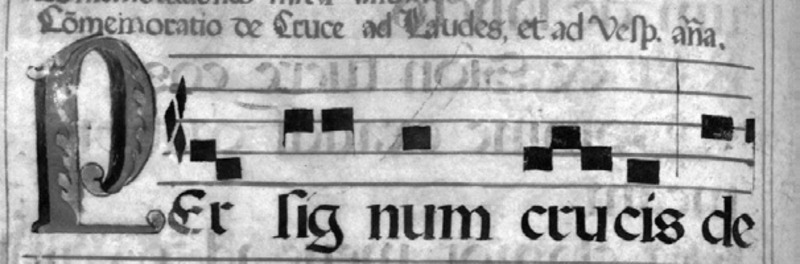 Cõmemoratio de Cruce ad Laudes, et ad Vesp. aña.
PEr sig num crucis de